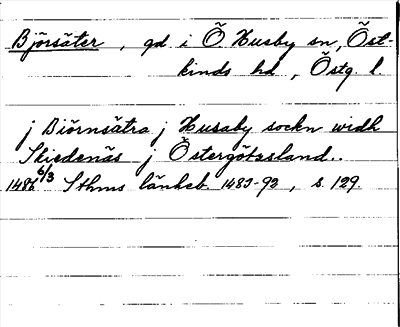 Björsäter, gd i Ö. Husby sn, Öst-
kinds hd, Östg. l.
j Biörnsätra j Husaby sockn widh
Skiedenäs j Östergötzsland..
1486 6/3 Sthms länkeb. 1483-92, s. 129.